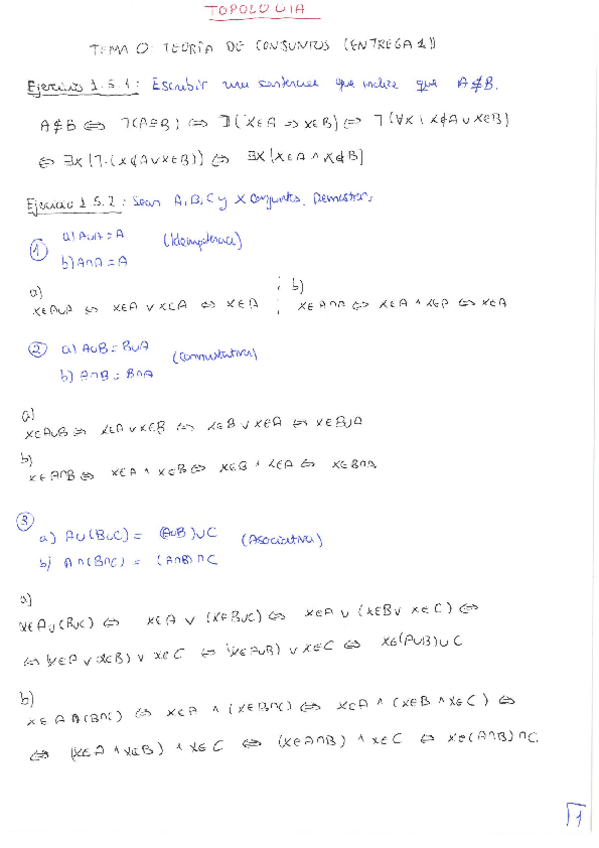 TOPOLOGIA
TEMA 0: TEORÍA DE CONJUNTOS (ENTREGA 1)
Ejercicio 1.5.1: Escribir una sentencia que indice que A⊈B.
A⊈B ⇔ ¬(A⊆B) ⇔ ¬(x∈A ⇒ x∈B) ⇔ ¬(∀x | x∉A ∨ x∈B)
⇔ ∃x | ¬(x∉A ∨ x∈B) ⇔ ∃x | x∈A ∧ x∉B
Ejercicio 1.5.2: Sean A, B, C y X conjuntos. Demostrar:
① a) A∪A = A (Idempotencia)
b) A∩A = A
a)
x∈A∪A ⇔ x∈A ∨ x∈A ⇔ x∈A
b)
x∈A∩A ⇔ x∈A ∧ x∈A ⇔ x∈A
② a) A∪B = B∪A (Conmutativa)
b) A∩B = B∩A
a)
x∈A∪B ⇔ x∈A ∨ x∈B ⇔ x∈B ∨ x∈A ⇔ x∈B∪A
b)
x∈A∩B ⇔ x∈A ∧ x∈B ⇔ x∈B ∧ x∈A ⇔ x∈B∩A
③
a) A∪(B∪C) = (A∪B)∪C (Asociativa)
b) A∩(B∩C) = (A∩B)∩C
a)
x∈A∪(B∪C) ⇔ x∈A ∨ (x∈B∪C) ⇔ x∈A ∨ (x∈B ∨ x∈C) ⇔
⇔ (x∈A ∨ x∈B) ∨ x∈C ⇔ (x∈A∪B) ∨ x∈C ⇔ x∈(A∪B)∪C
b)
x∈A∩(B∩C) ⇔ x∈A ∧ (x∈B∩C) ⇔ x∈A ∧ (x∈B ∧ x∈C) ⇔
⇔ (x∈A ∧ x∈B) ∧ x∈C ⇔ (x∈A∩B) ∧ x∈C ⇔ x∈(A∩B)∩C.
1